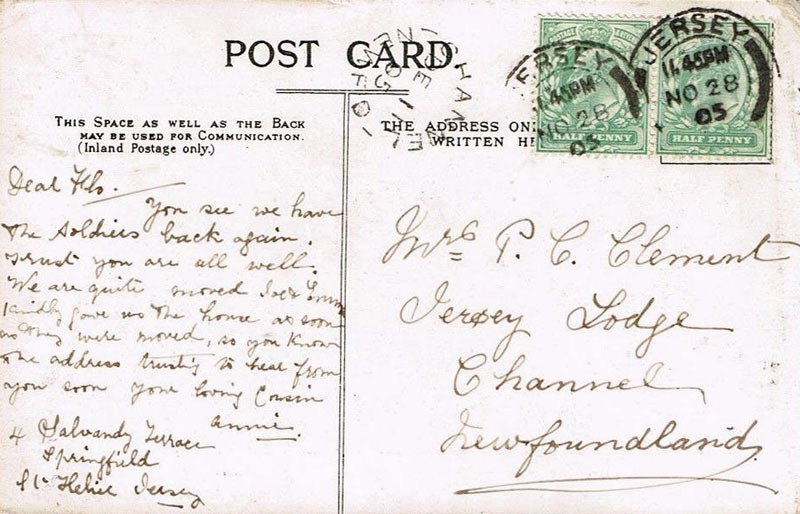 POST CARD.
THIS SPACE AS WELL AS THE BACK
MAY BE USED FOR COMMUNICATION.
(Inland Postage only.)
THE ADDRESS ON
WRITTEN HE
JERSEY
11.45PM
NO 28
05
HALF PENNY
JERSEY
11.45PM
NO 28
05
HALF PENNY
Dear Flo.
You see we have
the Soldiers back again.
trust you are all well.
We are quite moved Joe &
kindly gave us the house as soon
as they were moved, so you know
the address trusting to hear from
you soon your loving Cousin
Annie.
4 Salvandy Terrace
Springfield
St Helier Jersey
Mrs P. C. Clement
Jersey Lodge
Channel
Newfoundland